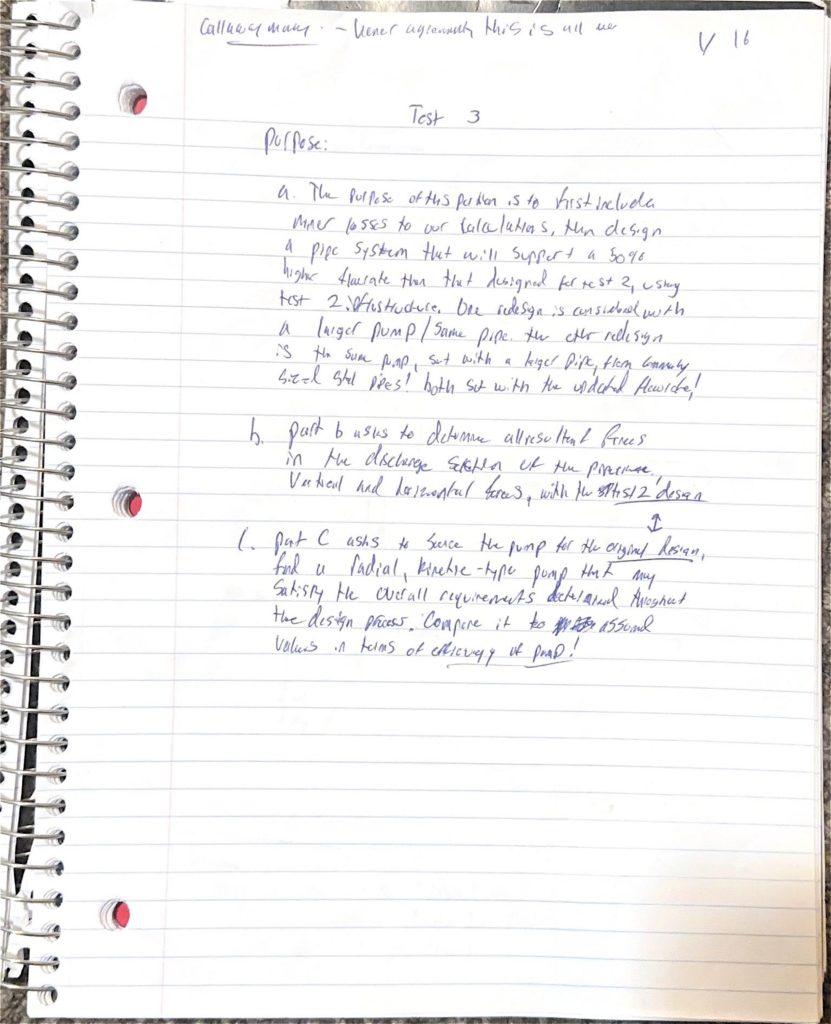 this is all me
16
Test 3
Purpose:
a. The purpose of this portion is to first include
losses to our calculations, then design
a pipe system that will support a 50%
higher flowrate than that designed for test 2, using
test 2 One redesign is considered with
a larger pump/same pipe. the other redesign
is the same pump, set with a larger pipe, from
sized Stel pipes! both set with the updated flowrate!
b. part b asks to determine all resultant forces
in the discharge section of the
Vertical and horizontal forces, with the test 2 design
C. part C asks to source the pump for the original design,
find a radial, kinetic-type pump that may
satisfy the overall requirements determined throughout
the design process. Compare it to assumed
values in terms of efficiency of pump!